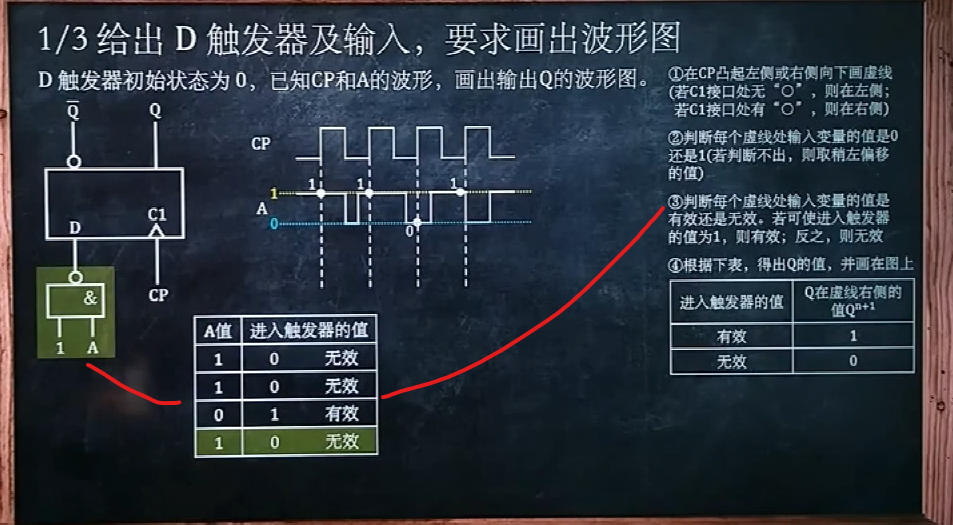 1/3 给出 D 触发器及输入，要求画出波形图
D 触发器初始状态为 0，已知CP和A的波形，画出输出Q的波形图。
Q̅ Q
D C1
CP
&
1 A
CP
1
A
0
1 1 1
0
A值 进入触发器的值
1 0 无效
1 0 无效
0 1 有效
1 0 无效
①在CP凸起左侧或右侧向下画虚线
(若C1接口处无“○”，则在左侧；
若C1接口处有“○”，则在右侧)
②判断每个虚线处输入变量的值是0
还是1(若判断不出，则取稍左偏移
的值)
③判断每个虚线处输入变量的值是
有效还是无效。若可使进入触发器
的值为1，则有效；反之，则无效
④根据下表，得出Q的值，并画在图上
进入触发器的值 Q在虚线右侧的
值Qⁿ⁺¹
有效 1
无效 0